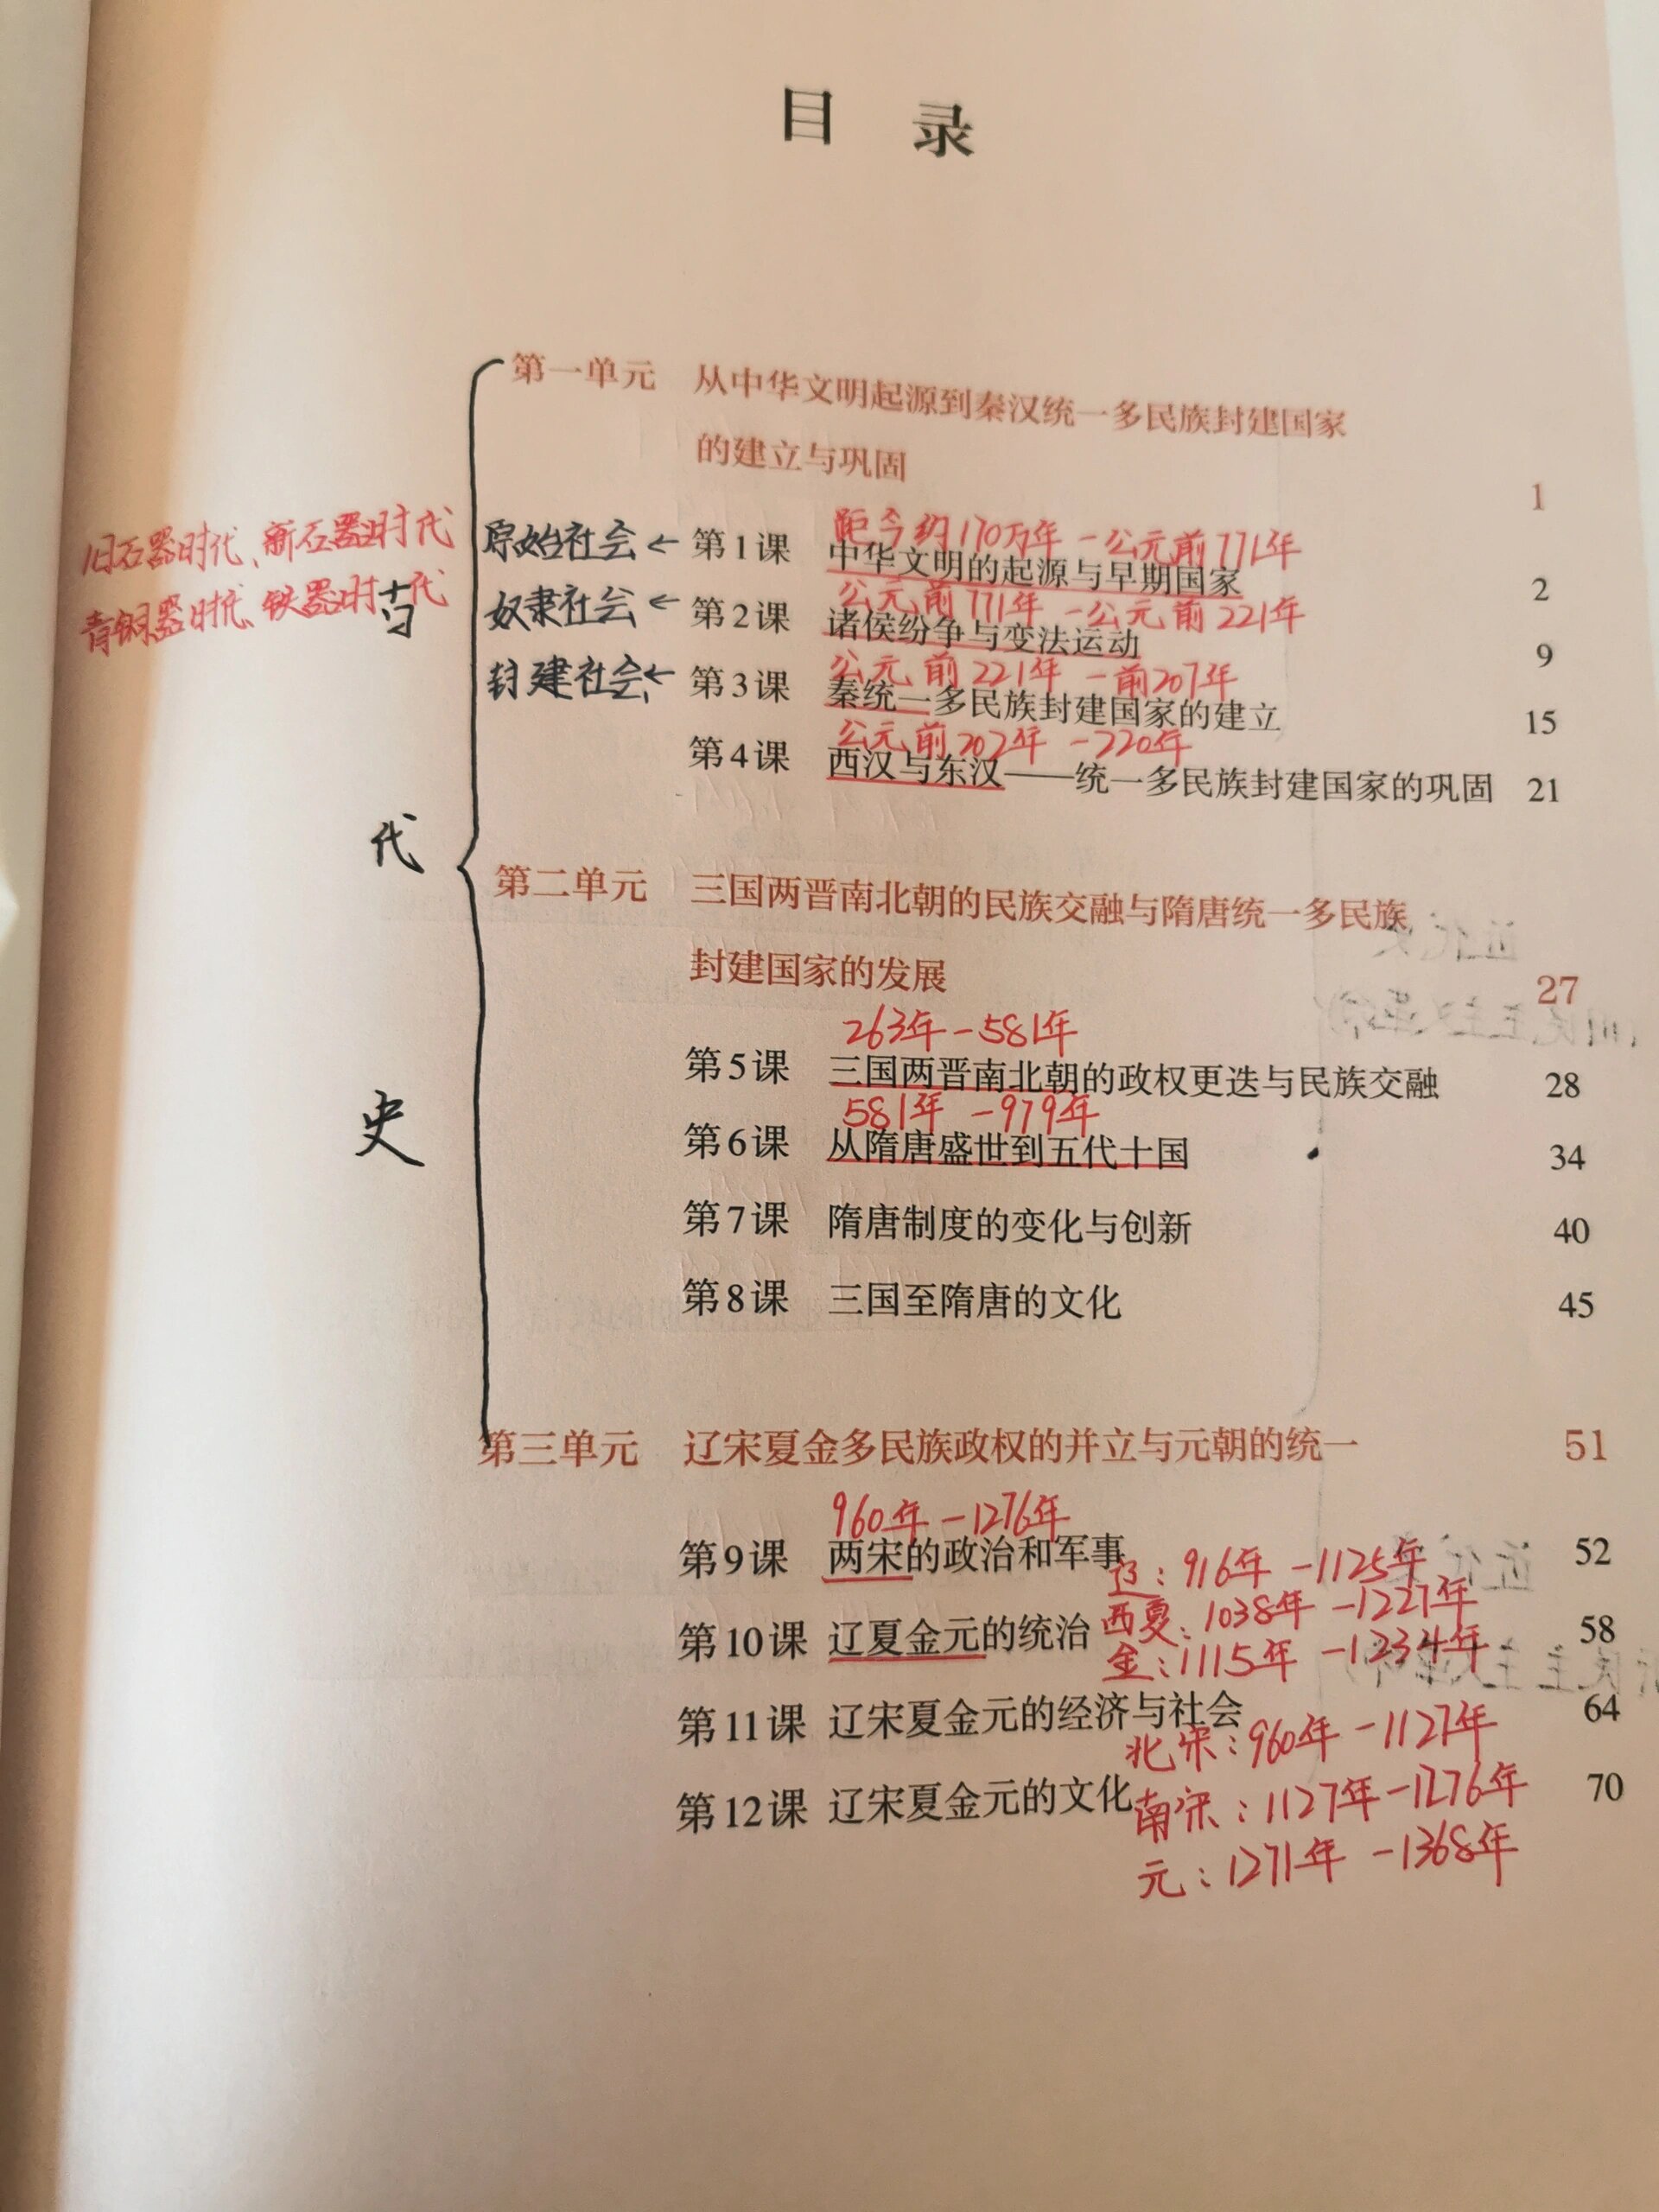 目 录
第一单元 从中华文明起源到秦汉统一多民族封建国家
的建立与巩固 1
旧石器时代、新石器时代
青铜器时代、铁器时代
古
代
史
距今约170万年-公元前771年
原始社会← 第1课 中华文明的起源与早期国家 2
公元前771年-公元前221年
奴隶社会← 第2课 诸侯纷争与变法运动 9
公元前221年-前207年
封建社会← 第3课 秦统一多民族封建国家的建立 15
公元前202年-220年
第4课 西汉与东汉——统一多民族封建国家的巩固 21
第二单元 三国两晋南北朝的民族交融与隋唐统一多民族
封建国家的发展 27
263年-581年
第5课 三国两晋南北朝的政权更迭与民族交融 28
581年-979年
第6课 从隋唐盛世到五代十国 34
第7课 隋唐制度的变化与创新 40
第8课 三国至隋唐的文化 45
第三单元 辽宋夏金多民族政权的并立与元朝的统一 51
960年-1276年
第9课 两宋的政治和军事 52
辽:916年-1125年
西夏:1038年-1227年
第10课 辽夏金元的统治 58
金:1115年-1234年
第11课 辽宋夏金元的经济与社会 64
北宋:960年-1127年
第12课 辽宋夏金元的文化 70
南宋:1127年-1276年
元:1271年-1368年